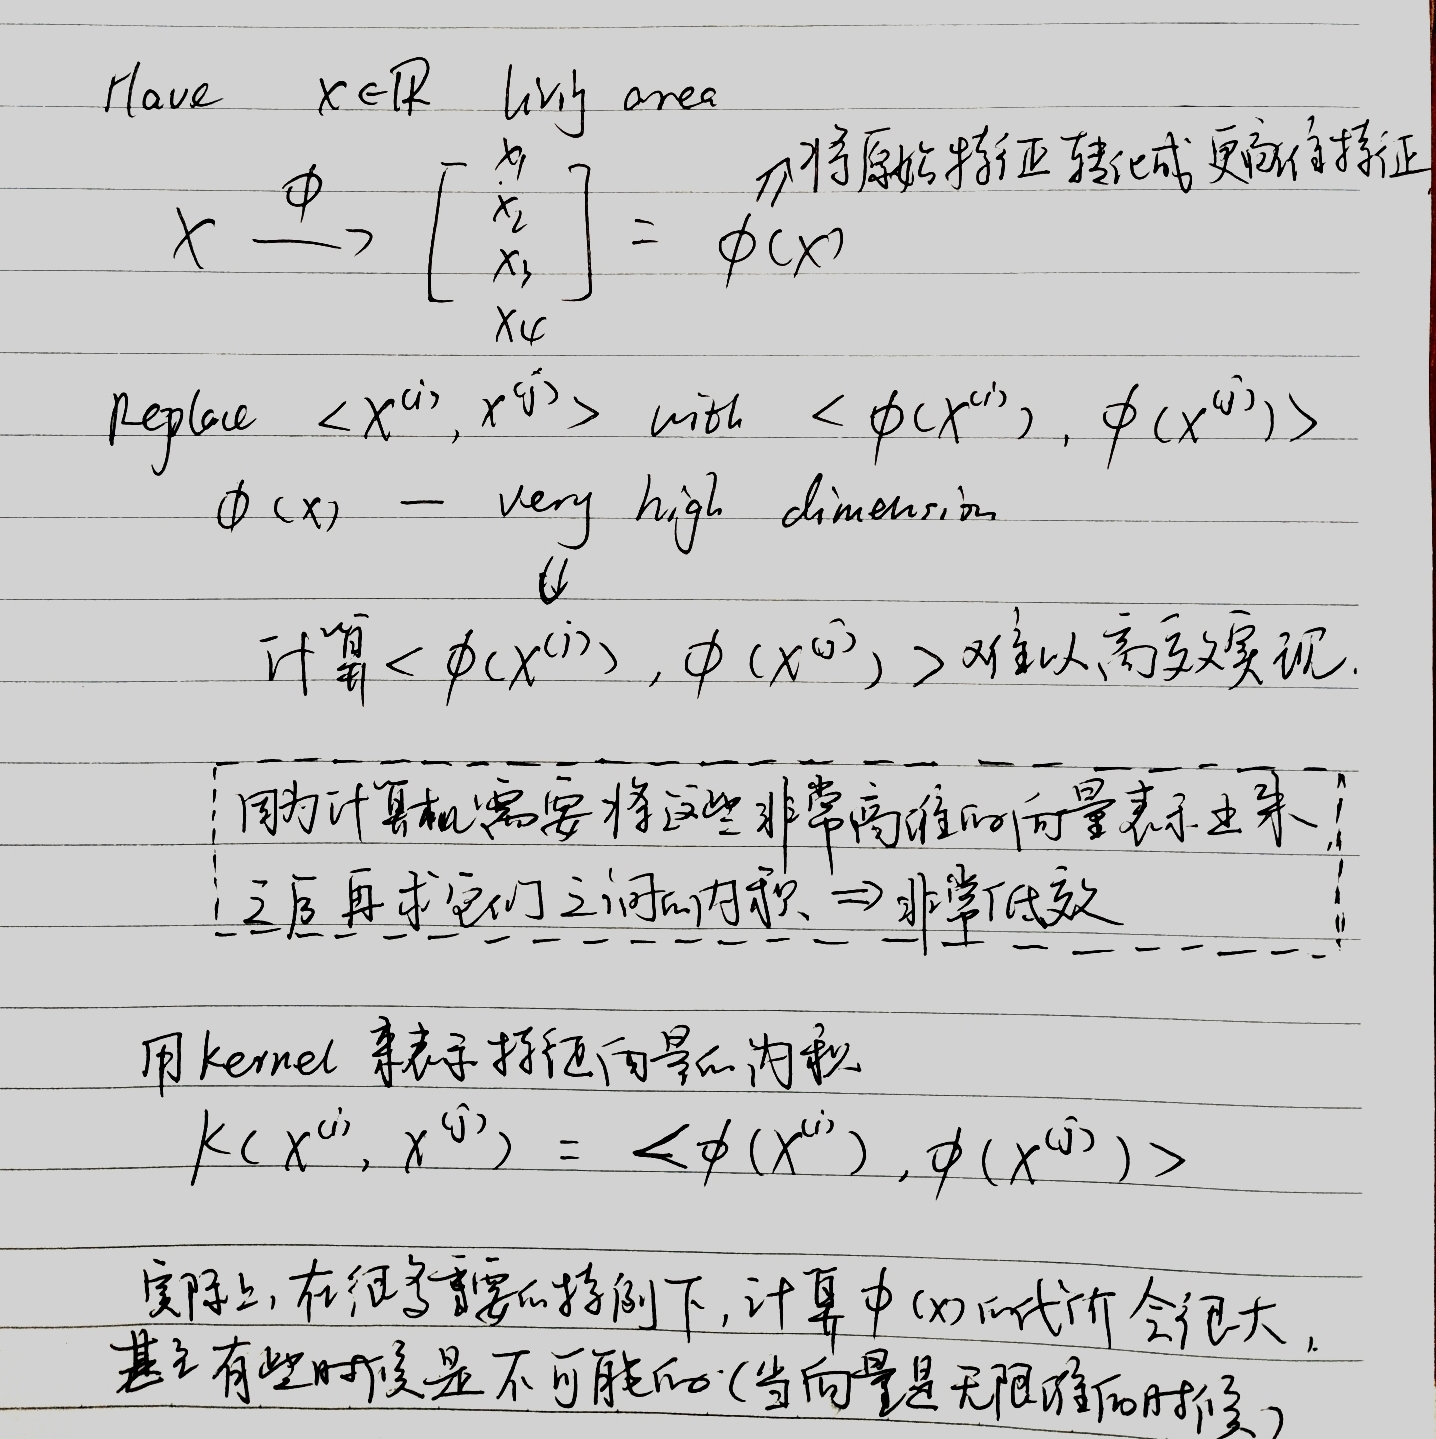 Have x∈ℝ living area
↗将原始特征转化成更高维特征
x —ϕ→ [x1 x2 x3 x4] = ϕ(x)
Replace <x^(i), x^(j)> with <ϕ(x^(i)), ϕ(x^(j))>
ϕ(x) — very high dimension
⇓
计算<ϕ(x^(i)), ϕ(x^(j))>难以高效实现.
因为计算机需要将这些非常高维的向量表示出来,
之后再求它们之间的内积 ⇒ 非常低效
用kernel来表示特征向量的内积
K(x^(i), x^(j)) = <ϕ(x^(i)), ϕ(x^(j))>
实际上,在很多重要的特例下,计算ϕ(x)的代价会很大,
甚至有些时候是不可能的(当向量是无限维的时候)